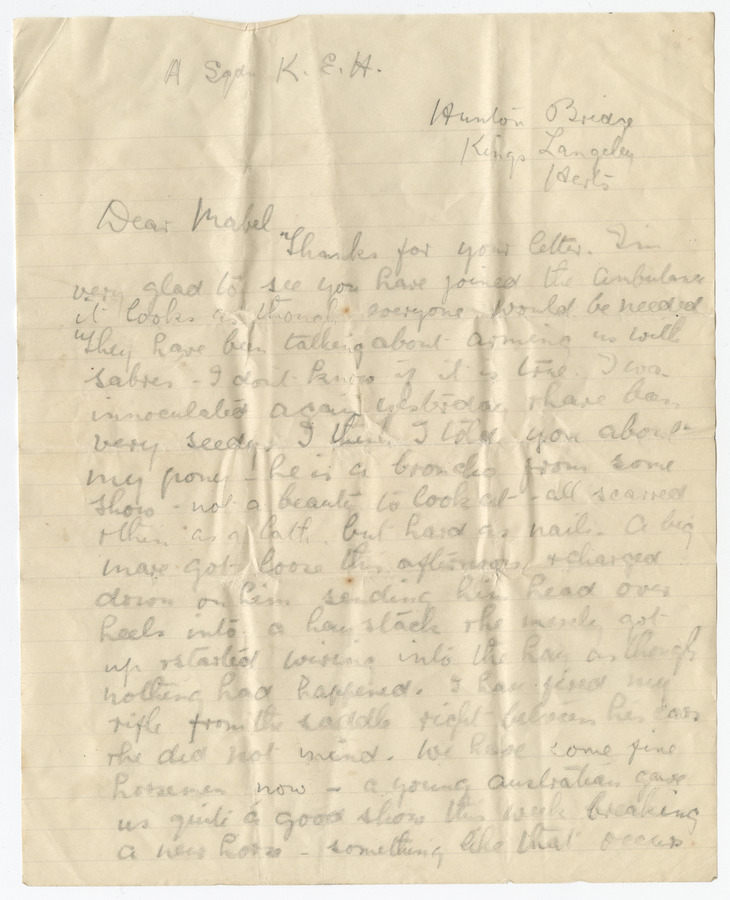 A Sqdn K. E. H.
Hunton Bridge
Kings Langeley
Herts
Dear Mabel
Thanks for your letter. I'm
very glad to see you have joined the ambulance
it looks as though everyone would be needed
They have been talking about arming us with
sabres - I dont know if it is true. I was
innoculated again yesterday & have been
very seedy. I think I told you about
my pony - he is a broncho from some
show - not a beauty to look at - all scarred
& thin as a lath, but hard as nails. A big
mare got loose this afternoon & charged
down on him sending him head over
heels into a haystack & he merely got
up & started wiring into the hay as though
nothing had happened. I have fired my
rifle from the saddle right between his ears
& he did not mind. We have some fine
horsemen now - a young australian gave
us quite a good show this week breaking
a new horse - something like that occurs